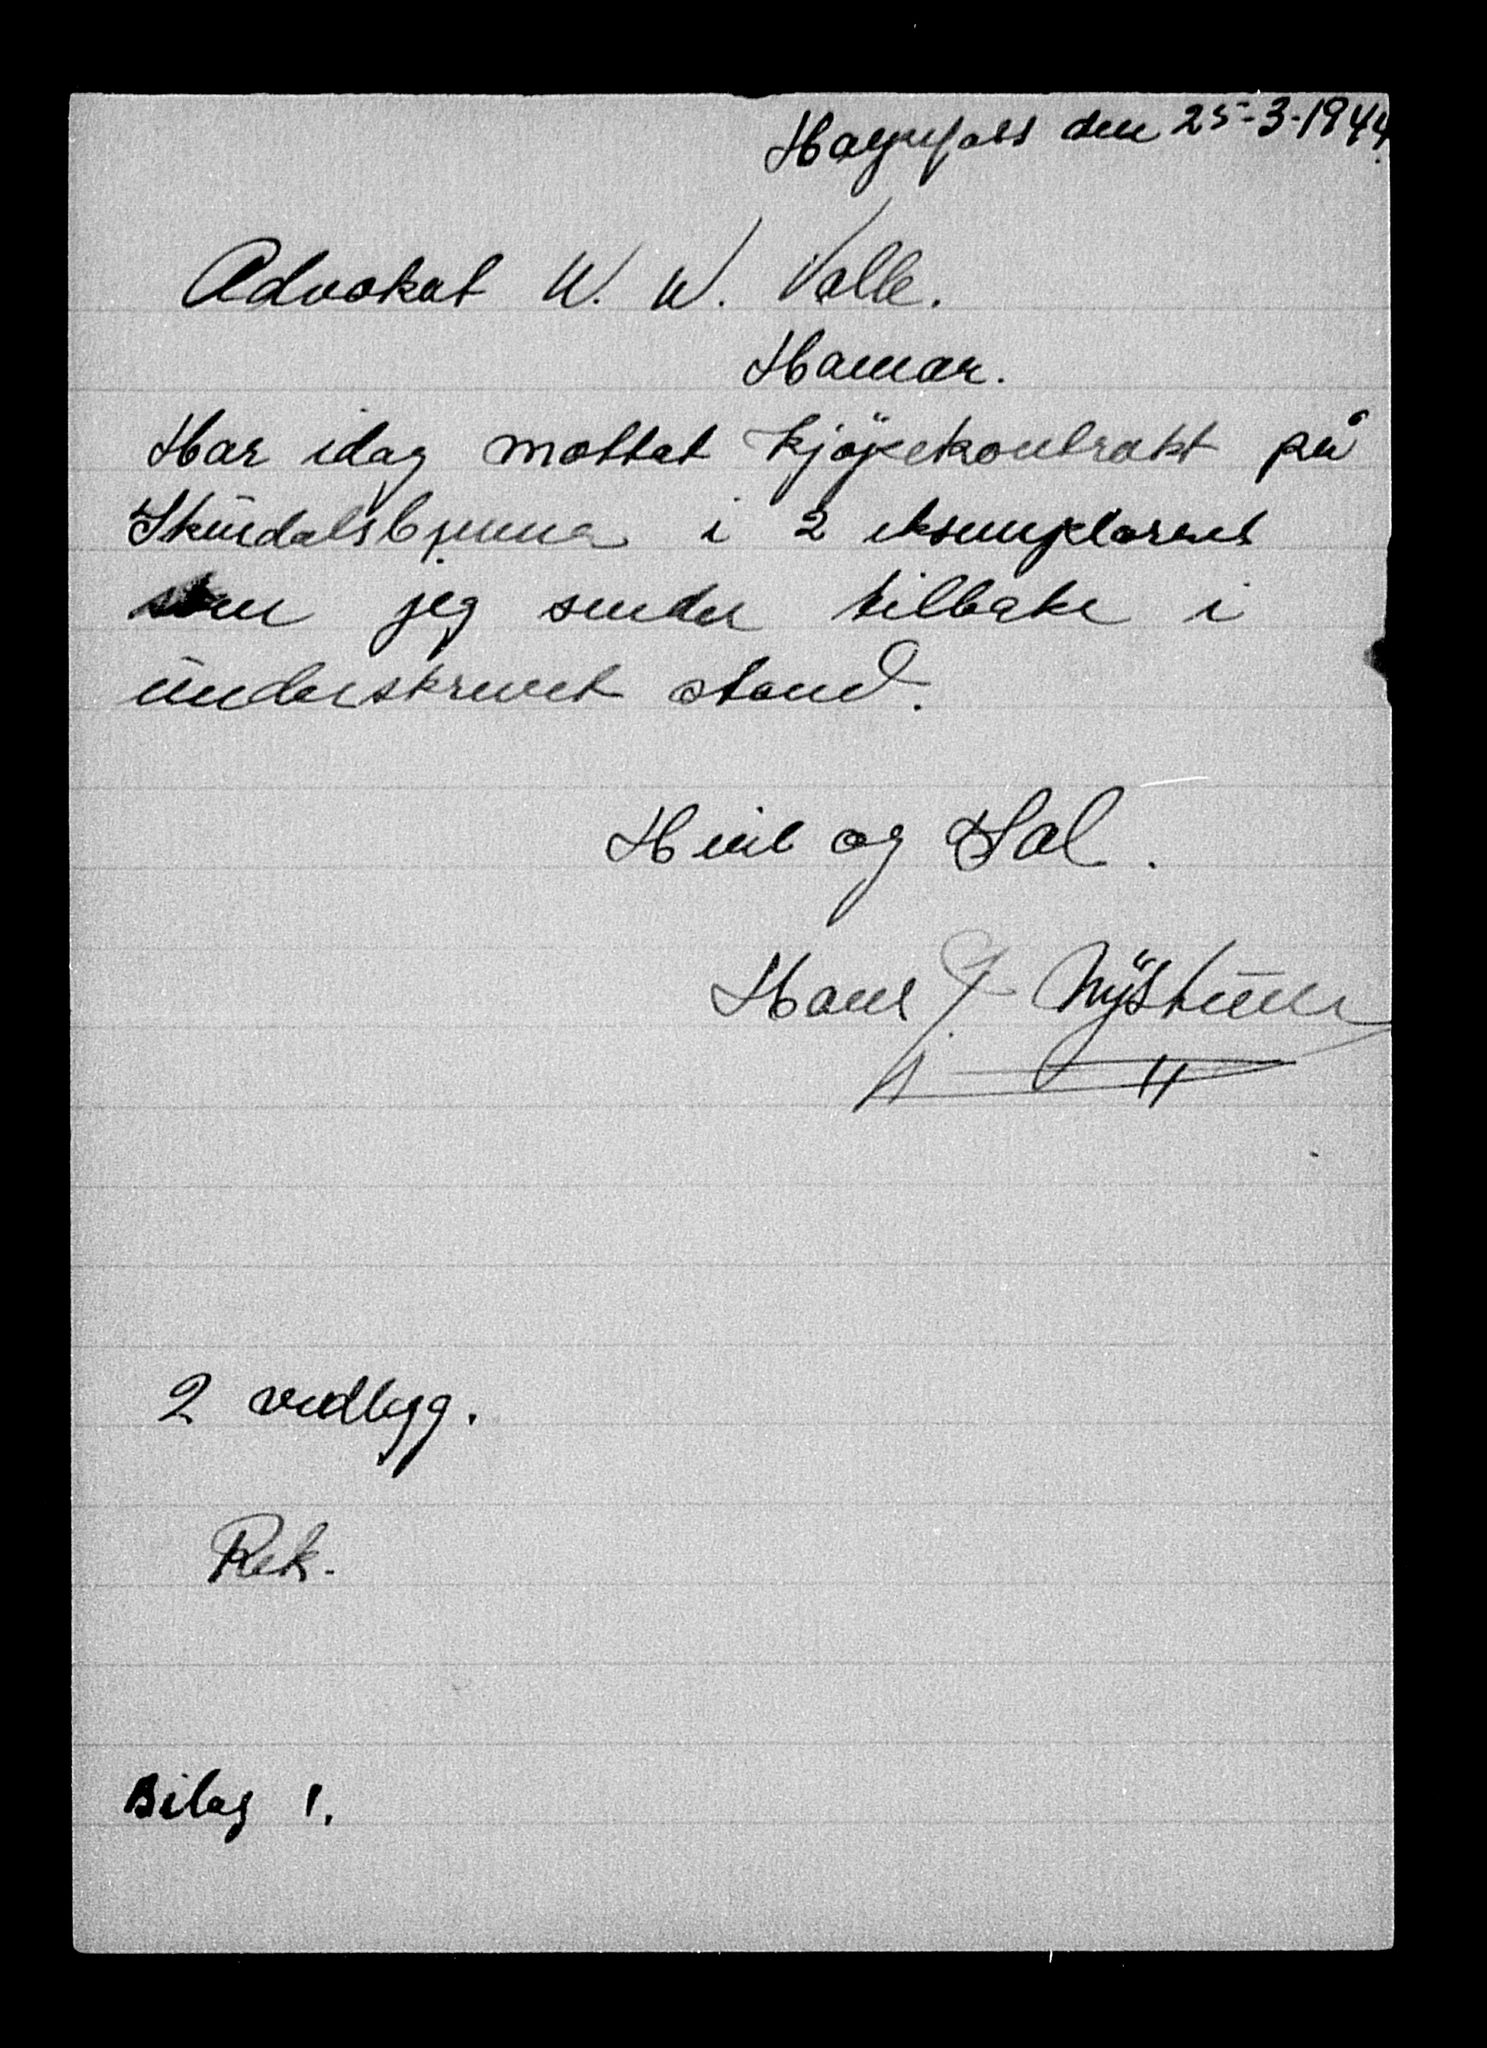 den 25-3-1944
Advokat W. W. Valle.
Hamar.
Har idag mottat kjöpekontrakt på
i 2 eksemplarer
som jeg sender tilbake i
underskrevet stand.
Heil og Sal.
Hans
2 vedlegg.
Rek.
Bilag 1.